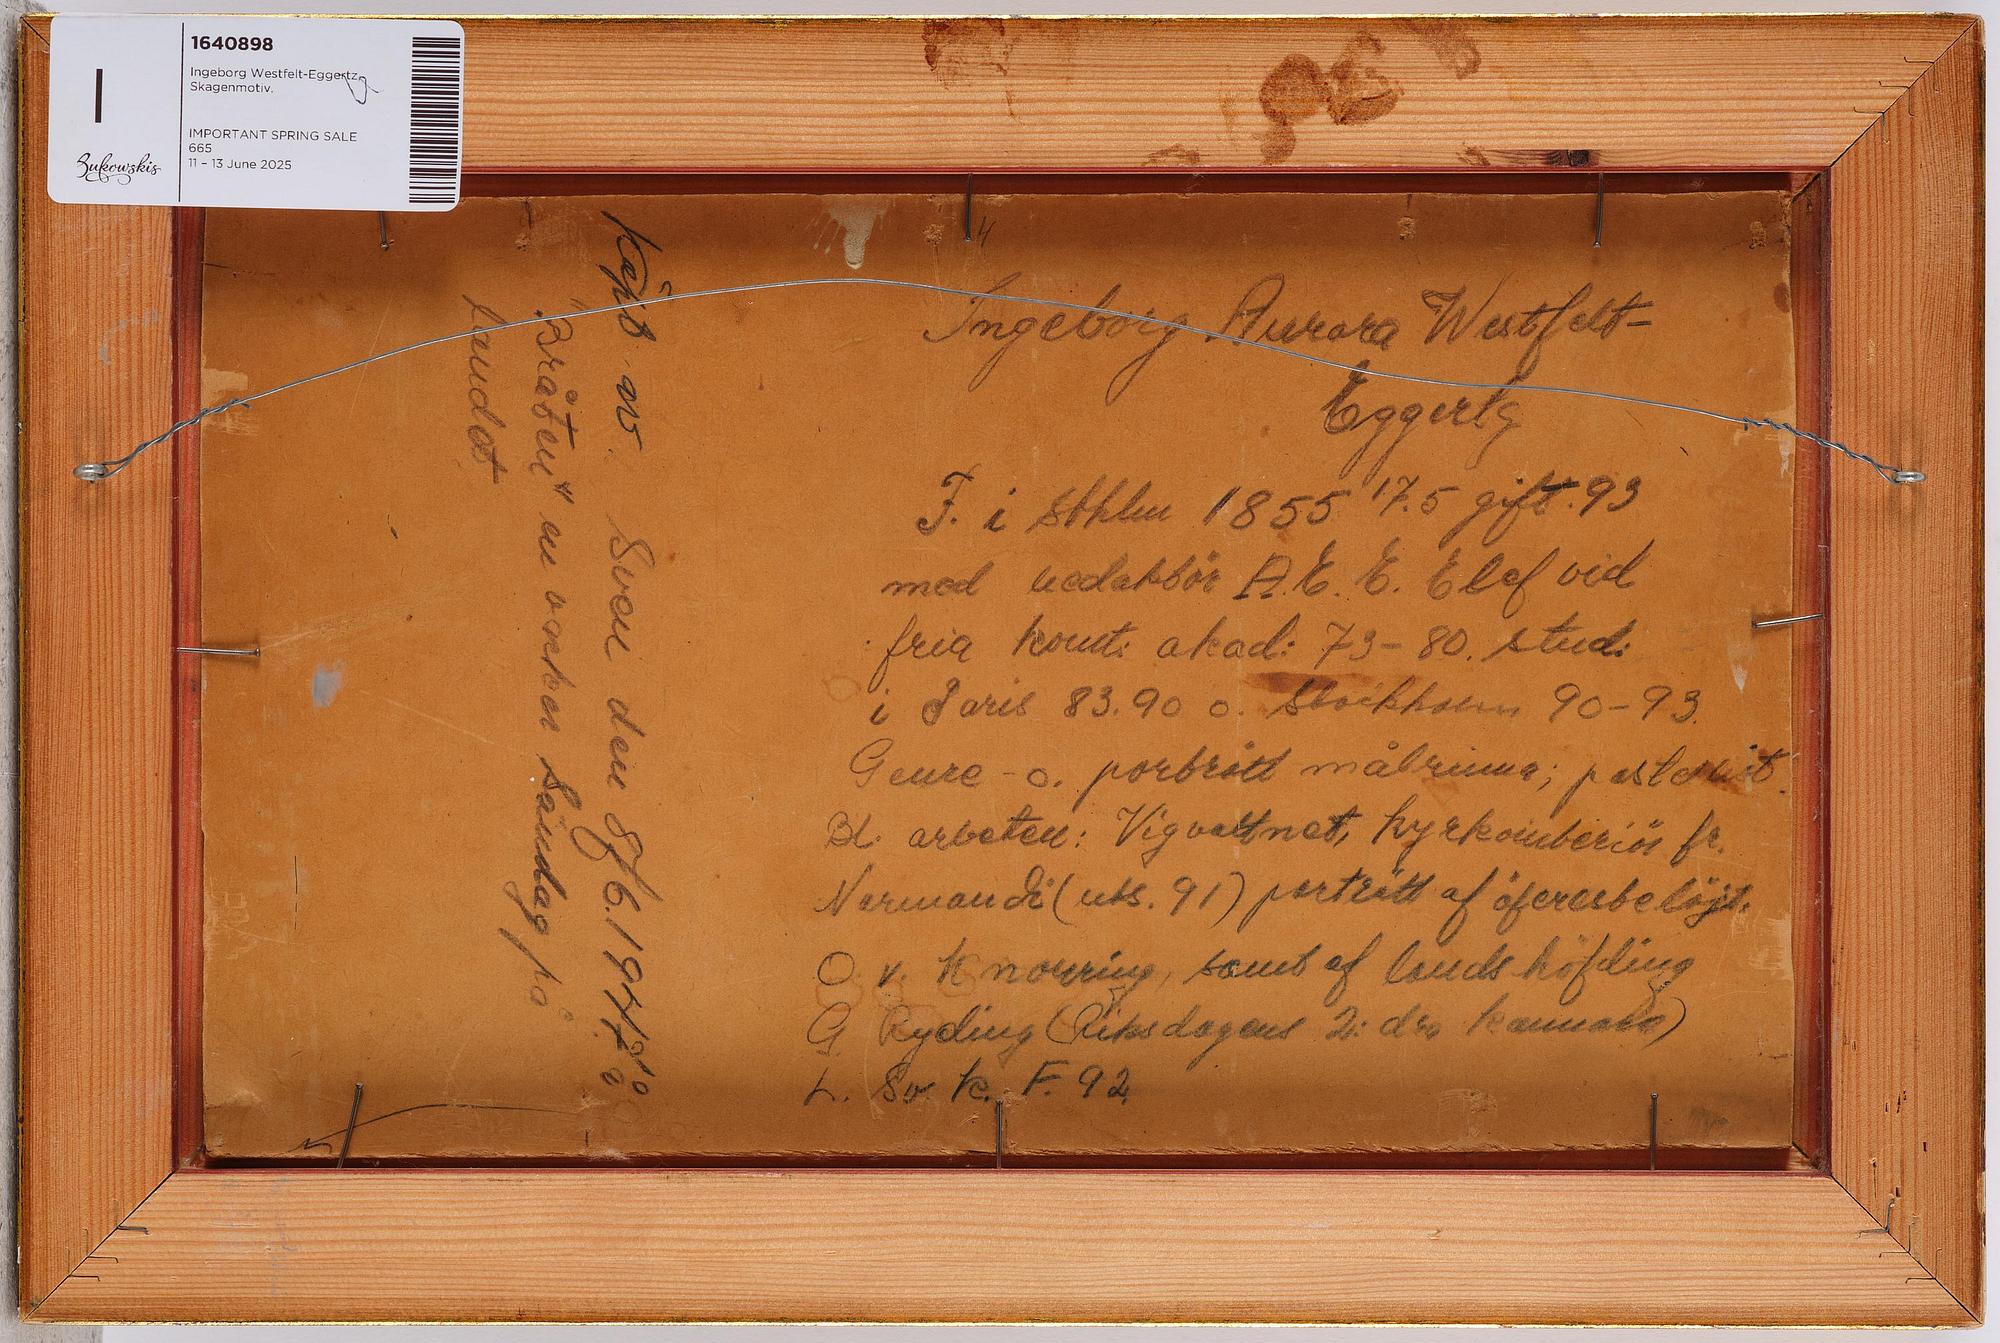 1640898
Ingeborg Westfelt-Eggertz
Skagenmotiv.
IMPORTANT SPRING SALE
665
11 – 13 June 2025
I
Bukowskis
4
Ingeborg Aurora Westfelt-
Eggertz
F. i Sthlm 1855 17.5 gift. 93
med redaktör A. E. E. Elef vid
fria konst. akad: 73-80. stud:
i Paris 83.90 o. Stockholm 90-93.
Genre - o. porträtt målrinna; pastellist.
Bl. arbeten: Vigvattnet, kyrkointeriör fr.
Normandi (uts. 91) porträtt af öfverstelöjt.
O. v. Knorring, samt af landshöfding
G. Ryding (Riksdagens 2: dra kammare)
L. Sv. k. F. 92
Köpt av. Sven den 8/6.1947.
"Bråten" en vacker Söndag på
landet